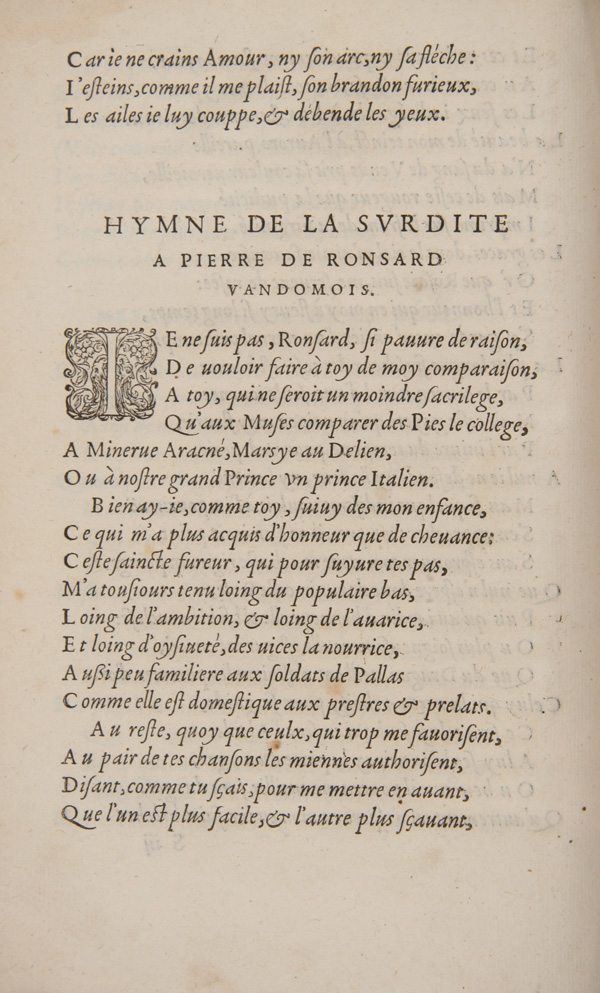 Car ie ne crains Amour, ny ſon arc, ny ſa fléche:
I'eſteins, comme il me plaiſt, ſon brandon furieux,
Les ailes ie luy couppe, & débende les yeux.
HYMNE DE LA SVRDITE
A PIERRE DE RONSARD
VANDOMOIS.
IE ne ſuis pas, Ronſard, ſi pauure de raiſon,
De uouloir faire à toy de moy comparaiſon,
A toy, qui ne ſeroit un moindre ſacrilege,
Qu'aux Muſes comparer des Pies le college,
A Minerue Aracné, Marsye au Delien,
Ou à noſtre grand Prince vn prince Italien.
Bien ay-ie, comme toy, ſuiuy des mon enfance,
Ce qui m'a plus acquis d'honneur que de cheuance:
Ceſte ſaincte fureur, qui pour ſuyure tes pas,
M'a touſiours tenu loing du populaire bas,
Loing de l'ambition, & loing de l'auarice,
Et loing d'oyſiueté, des uices la nourrice,
Auſsi peu familiere aux ſoldats de Pallas
Comme elle eſt domeſtique aux preſtres & prelats.
Au reſte, quoy que ceulx, qui trop me fauoriſent,
Au pair de tes chanſons les miennes authoriſent,
Diſant, comme tu ſçais, pour me mettre en auant,
Que l'un eſt plus facile, & l'autre plus ſçauant,